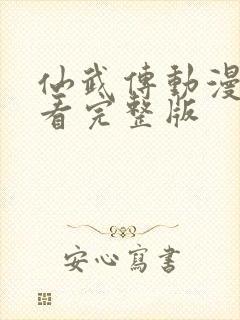 仙武傳動漫
看完整版
安心寫書